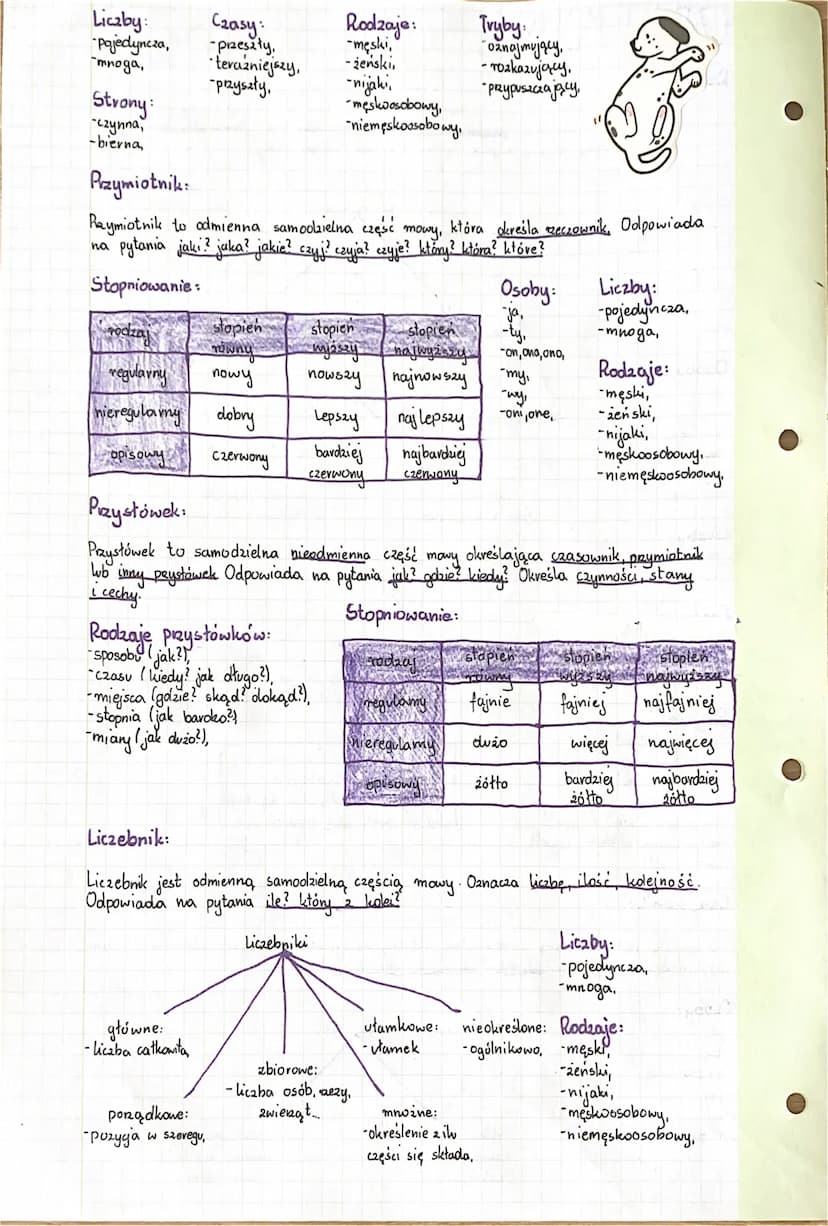 Liczby:
-pojedyncza,
-mnoga,
Strony:
-czynna,
-bierna,
Czasy:
-przeszły,
-teraźniejszy,
-przyszły,
Rodzaje:
-męski,
-żeński,
-nijaki,
-męskoosobowy,
-niemęskoosobowy,
Tryby:
-oznajmujący,
-rozkazujący,
-przypuszczający,
Przymiotnik:
Przymiotnik to odmienna samodzielna część mowy, która określa rzeczownik. Odpowiada
na pytania jaki? jaka? jakie? czyj? czyja? czyje? który? która? które?
Stopniowanie:
rodzaj stopień równy stopień wyższy stopień najwyższy
regularny nowy nowszy najnowszy
nieregularny dobry lepszy najlepszy
opisowy czerwony bardziej czerwony najbardziej czerwony
Osoby:
-ja,
-ty,
-on, ona, ono,
-my,
-wy,
-oni, one,
Liczby:
-pojedyncza,
-mnoga,
Rodzaje:
-męski,
-żeński,
-nijaki,
-męskoosobowy,
-niemęskoosobowy,
Przysłówek:
Przysłówek to samodzielna nieodmienna część mowy określająca czasownik, przymiotnik
lub inny przysłówek Odpowiada na pytania jak? gdzie? kiedy? Określa czynności, stany
i cechy.
Rodzaje przysłówków:
-sposobu (jak?),
-czasu (kiedy? jak długo?),
-miejsca (gdzie? skąd? dokąd?),
-stopnia (jak bardzo?)
-miary (jak dużo?),
Stopniowanie:
rodzaj stopień równy stopień wyższy stopień najwyższy
regularny fajnie fajniej najfajniej
nieregularny dużo więcej najwięcej
opisowy żółto bardziej żółto najbardziej żółto
Liczebnik:
Liczebnik jest odmienną samodzielną częścią mowy. Oznacza liczbę, ilość, kolejność.
Odpowiada na pytania ile? który z kolei?
Liczebniki
główne:
-liczba całkowita,
porządkowe:
-pozycja w szeregu,
zbiorowe:
-liczba osób, rzeczy,
zwierząt...
mnożne:
-określenie z ilu
części się składa,
ułamkowe:
-ułamek
nieokreślone:
-ogólnikowo,
Liczby:
-pojedyncza,
-mnoga,
Rodzaje:
-męski,
-żeński,
-nijaki,
-męskoosobowy,
-niemęskoosobowy,